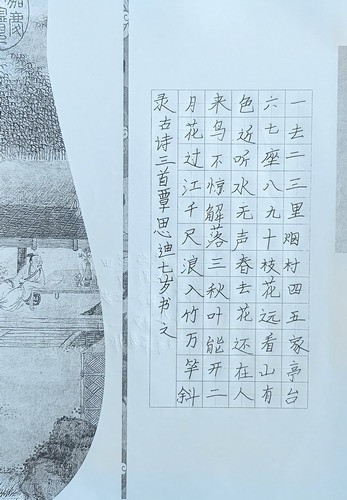 一去二三里烟村四五家亭台
六七座八九十枝花远看山有
色近听水无声春去花还在人
来鸟不惊解落三秋叶能开二
月花过江千尺浪入竹万竿斜
录古诗三首覃思迪七岁书之